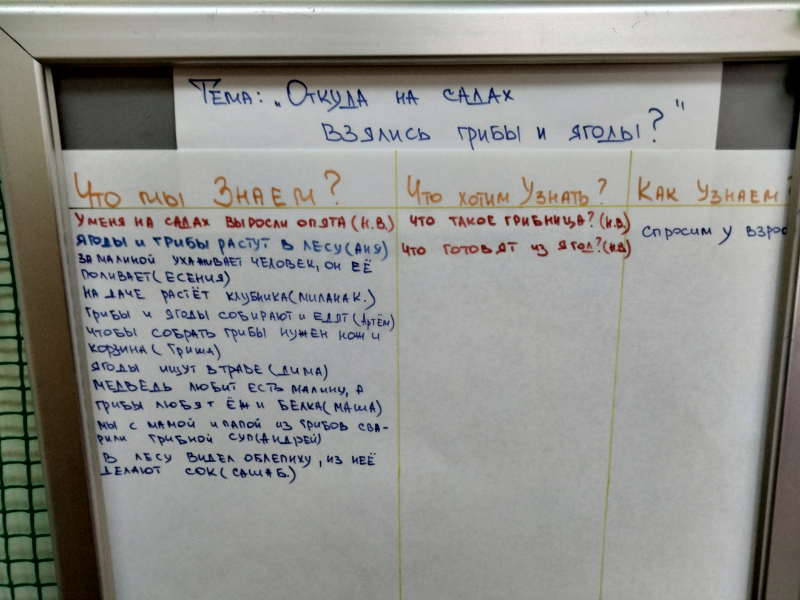 Тема: „Откуда на садах
взялись грибы и ягоды?"
Что мы Знаем?
Уменя на садах выросли опята (Н.В.)
Ягоды и грибы растут в лесу (Аня)
За малиной ухаживает человек, он её
поливает (Есения)
На даче растёт клубника (Милана К.)
Грибы и ягоды собирают и едят (Артём)
Чтобы собрать грибы нужен нож и
корзина (Гриша)
Ягоды ищут в траве (Дима)
Медведь любит есть малину, а
грибы любят ёж и белка (Маша)
Мы с мамой и папой из грибов сва-
рили грибной суп (Андрей)
В лесу видел облепиху, из неё
делают сок (Саша Б.)
Что хотим Узнать?
Что такое грибница? (Н.В.)
Что готовят из ягод? (Н.В.)
Как Узнаем?
Спросим у взрос